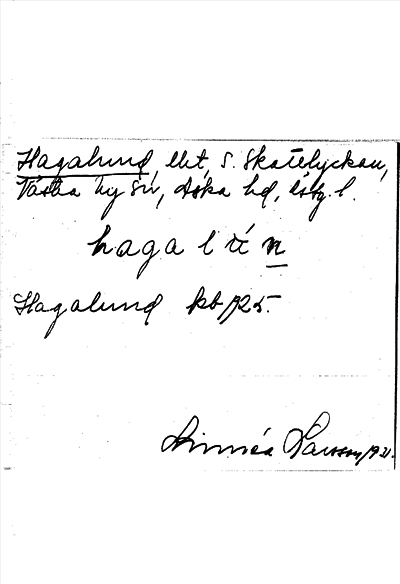 Hagalund, lht, s. Skatelyckan,
Västra Ny sn, Aska hd, Östg. l.
hagalún
Hagalund kb 1925.
Linnéa Larsson 1931.